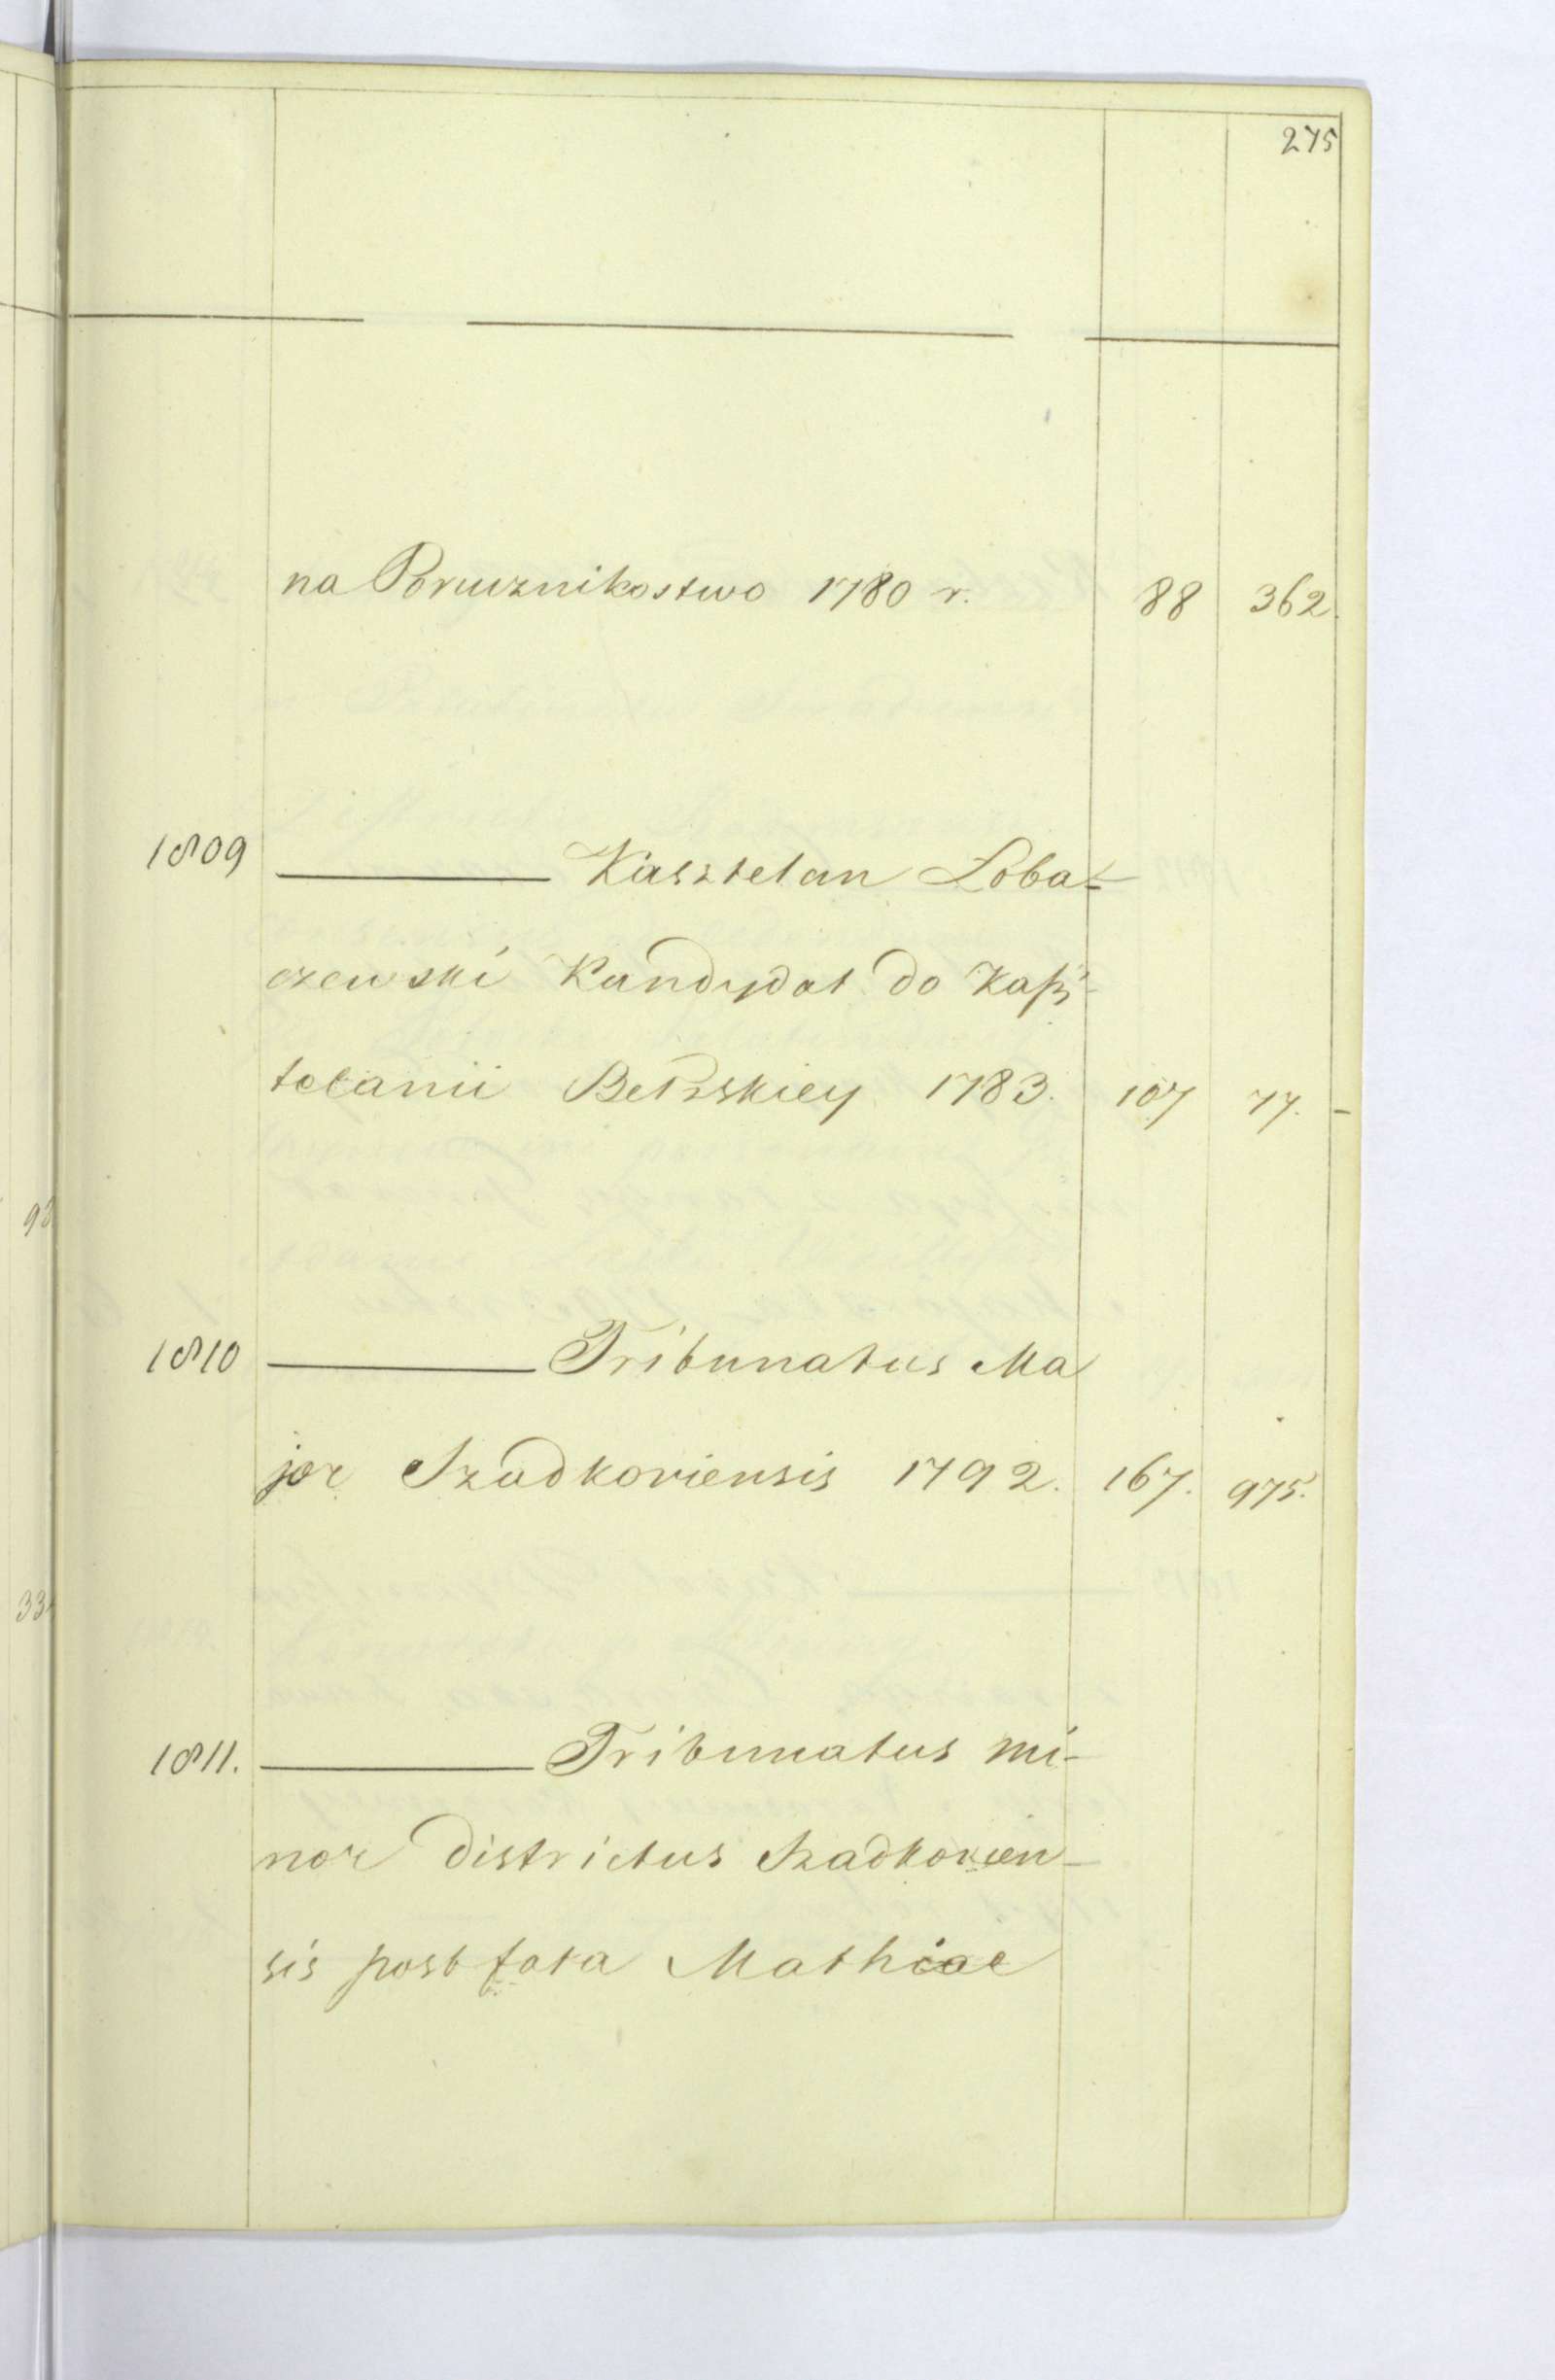 275
na Porucznikostwo 1780 r. 88 362.
1809 Kasztelan Loba-
czewski Kandydat do Kaß-
telanii Bełzskiey 1783. 107 77.
1810 Tribunatus Ma
jor Szadkoviensis 1792. 167. 975.
1811. Tribunatus mi-
nor districtus Szadkovien-
sis post fata Mathiae